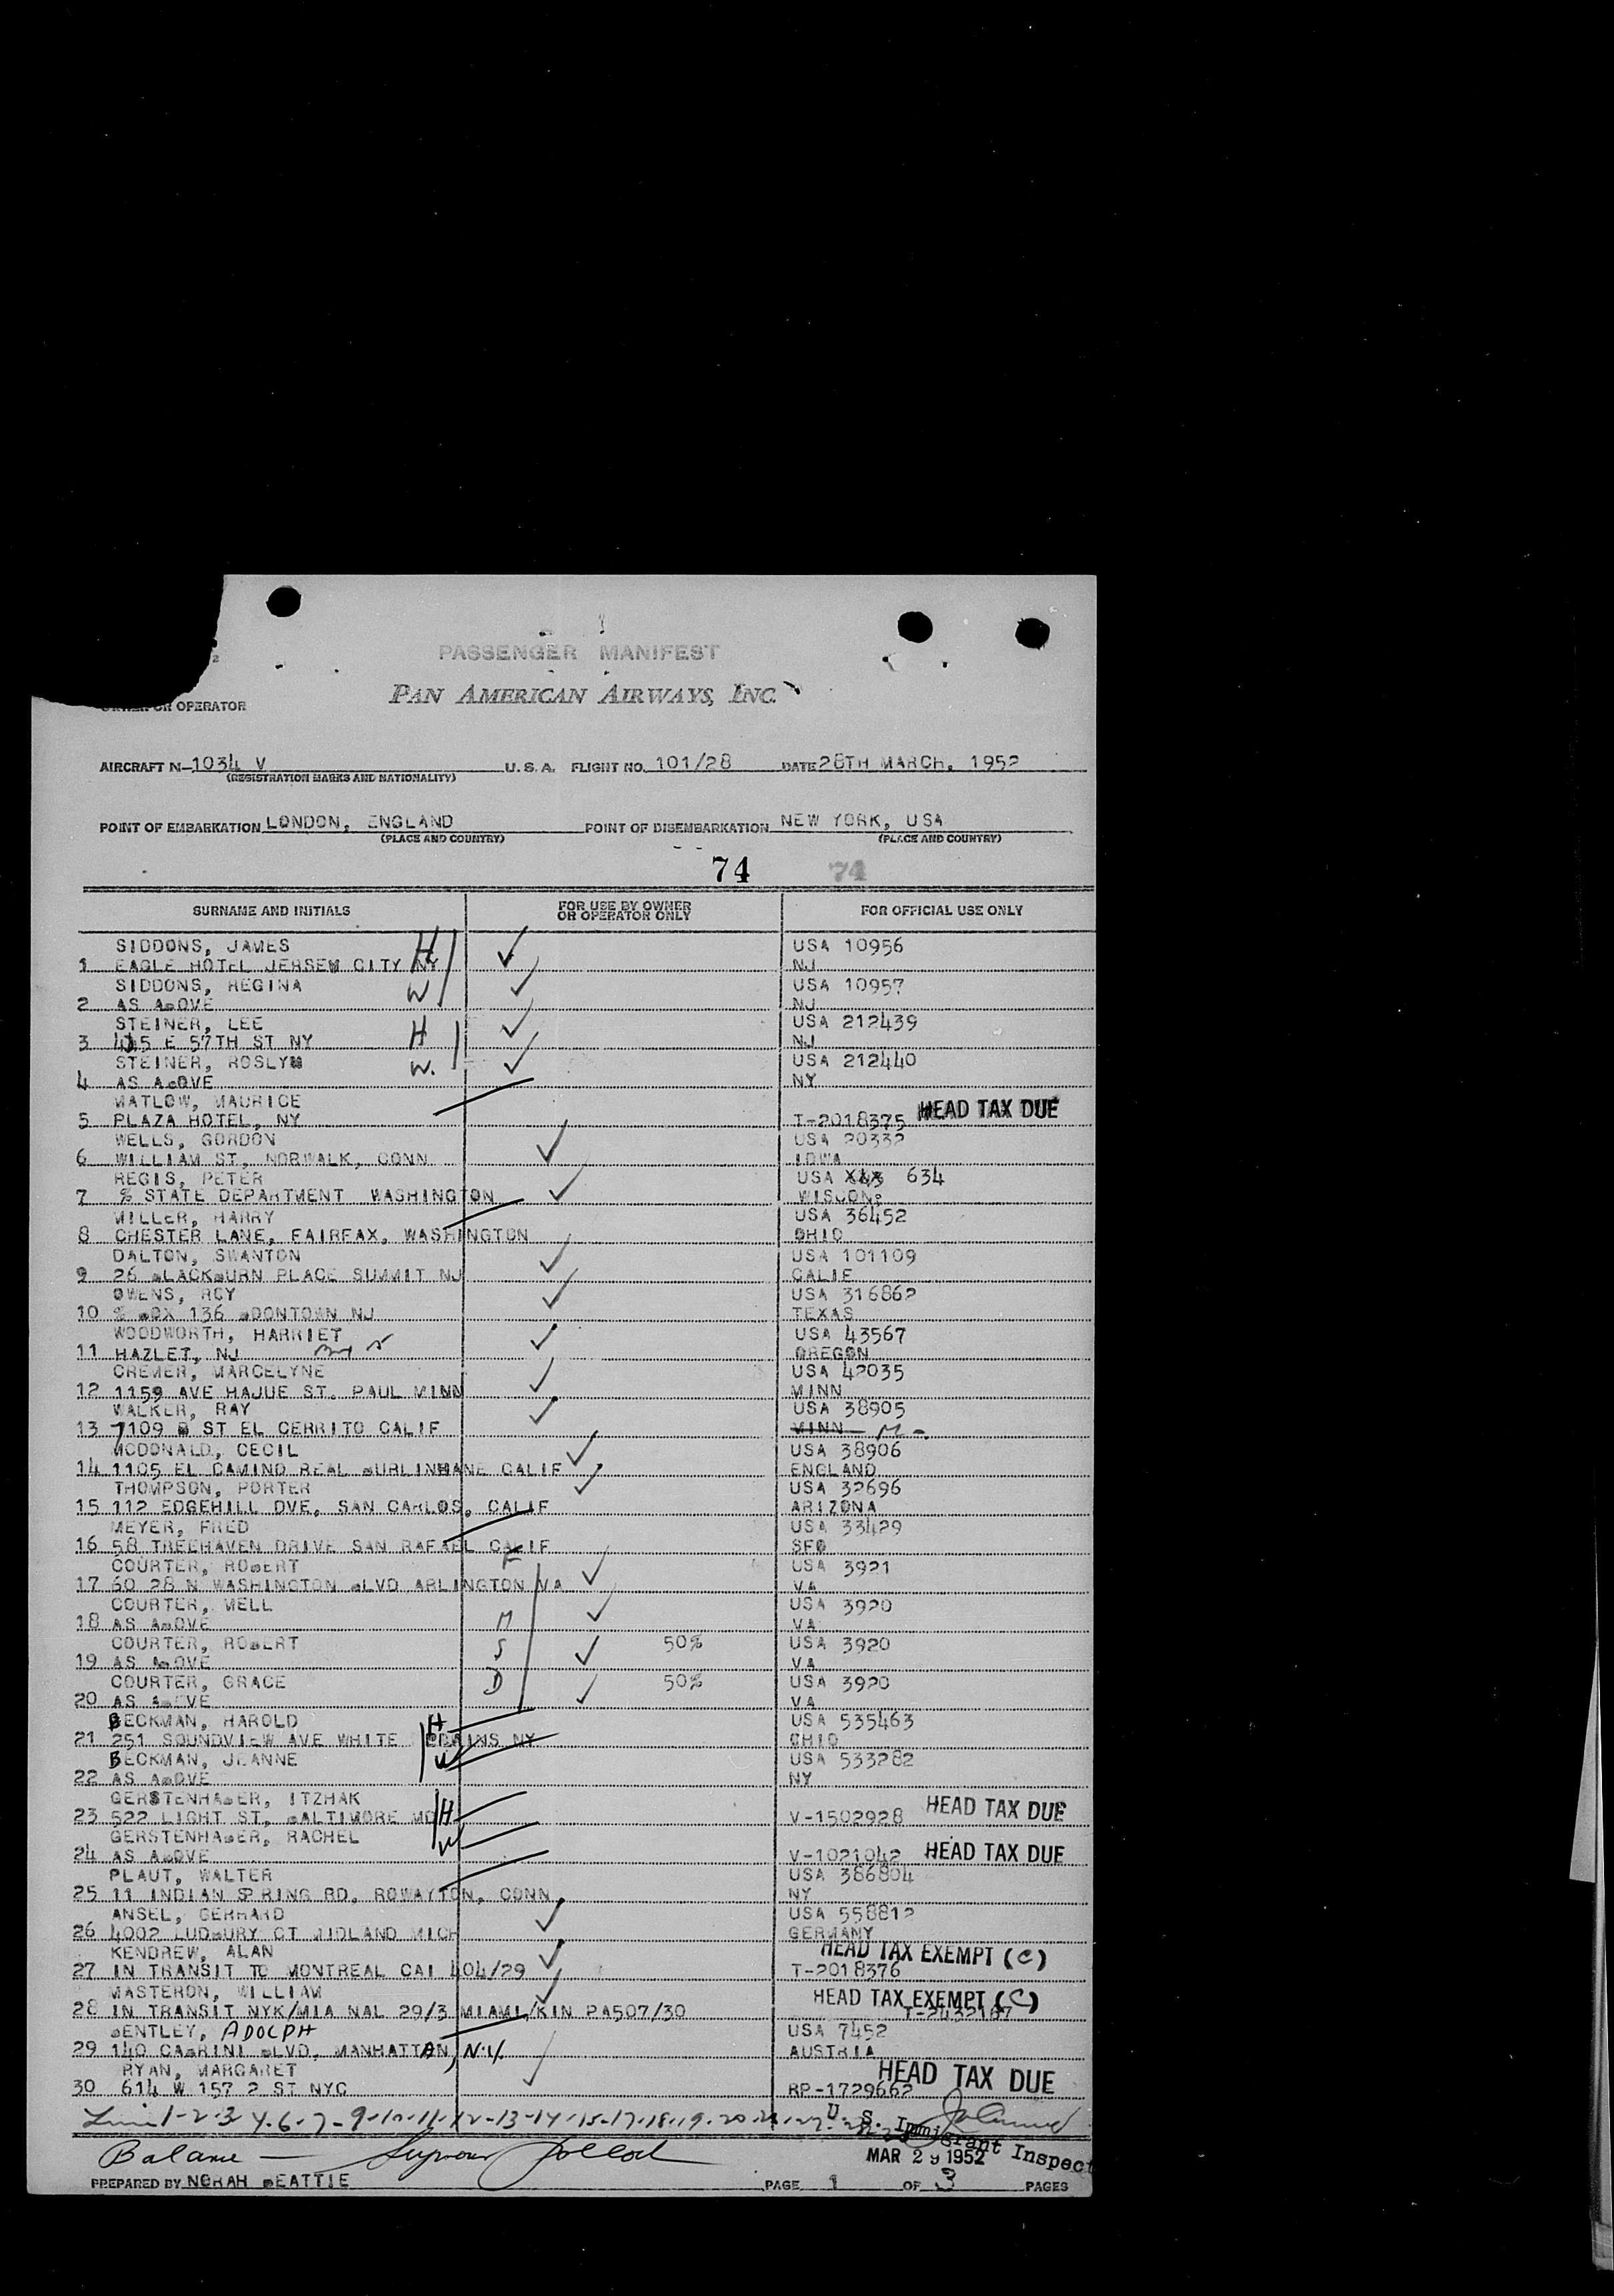 PASSENGER MANIFEST
PAN AMERICAN AIRWAYS, INC.
OWNER OR OPERATOR
AIRCRAFT N-1034 V U.S.A. FLIGHT NO. 101/28 DATE 28TH MARCH, 1952
(REGISTRATION MARKS AND NATIONALITY)
POINT OF EMBARKATION LONDON, ENGLAND POINT OF DISEMBARKATION NEW YORK, USA
(PLACE AND COUNTRY) (PLACE AND COUNTRY)
74 74
SURNAME AND INITIALS FOR USE BY OWNER OR OPERATOR ONLY FOR OFFICIAL USE ONLY
SIDDONS, JAMES H USA 10956
1 EAGLE HOTEL JERSEW CITY NY NJ
SIDDONS, REGINA W USA 10957
2 AS ABOVE NJ
STEINER, LEE H USA 212439
3 415 E 57TH ST NY NJ
STEINER, ROSLYN W. USA 212440
4 AS ABOVE NY
MATLOW, MAURICE
5 PLAZA HOTEL, NY T-2018375 HEAD TAX DUE
WELLS, GORDON USA 20332
6 WILLIAM ST, NORWALK, CONN IOWA
REGIS, PETER USA 634
7 % STATE DEPARTMENT WASHINGTON WISCON:
MILLER, HARRY USA 36452
8 CHESTER LANE, FAIRFAX, WASHINGTON OHIO
DALTON, SWANTON USA 101109
9 26 BLACKBURN PLACE SUMMIT NJ CALIF
OWENS, ROY USA 316862
10 % BOX 136 BOONTOWN NJ TEXAS
WOODWORTH, HARRIET USA 43567
11 HAZLET, NJ OREGON
CREMER, MARCELYNE USA 42035
12 1159 AVE HAJUE ST. PAUL MINN MINN
WALKER, RAY USA 38905
13 7109 B ST EL CERRITO CALIF MINN
MCDONALD, CECIL USA 38906
14 1105 EL CAMINO REAL BURLINHANE CALIF ENGLAND
THOMPSON, PORTER USA 32696
15 112 EDGEHILL DVE, SAN CARLOS, CALIF ARIZONA
MEYER, FRED USA 33429
16 58 TREEHAVEN DRIVE SAN RAFAEL CALIF SFO
COURTER, ROBERT F USA 3921
17 60 28 N WASHINGTON BLVD ARLINGTON VA VA
COURTER, MELL USA 3920
18 AS ABOVE M VA
COURTER, ROBERT S 50% USA 3920
19 AS ABOVE VA
COURTER, GRACE D 50% USA 3920
20 AS ABOVE VA
BECKMAN, HAROLD H USA 535463
21 251 SOUNDVIEW AVE WHITE PLAINS NY OHIO
BECKMAN, JEANNE W USA 533282
22 AS ABOVE NY
GERSTENHABER, ITZHAK
23 522 LIGHT ST, BALTIMORE MD H V-1502928 HEAD TAX DUE
GERSTENHABER, RACHEL W
24 AS ABOVE V-1021042 HEAD TAX DUE
PLAUT, WALTER USA 386804
25 11 INDIAN SPRING RD, ROWAYTON, CONN. NY
ANSEL, GERHARD USA 558812
26 4002 LUDBURY CT MIDLAND MICH GERMANY
KENDREW, ALAN HEAD TAX EXEMPT (C)
27 IN TRANSIT TO MONTREAL CAI 404/29 T-2018376
MASTERON, WILLIAM HEAD TAX EXEMPT (C)
28 IN TRANSIT NYK/MIA NAL 29/3 MIAMI/KIN PA507/30 T-2432187
BENTLEY, ADOLPH USA 7452
29 140 CABRINI BLVD, MANHATTAN, N.Y. AUSTRIA
RYAN, MARGARET HEAD TAX DUE
30 614 W 157 2 ST NYC RP-1729662
1-2-3 4-6-7-9-10-11-12-13-14-15-17-18-19-20
U. S. Immigrant Inspect
Balance — Seymour Pollock MAR 29 1952
PREPARED BY NORAH BEATTIE PAGE 1 OF 3 PAGES